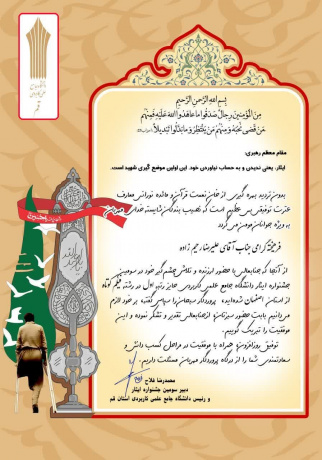 دانشگاه جامع علمی کاربردی
قم
بِسمِ اللهِ الرَّحمنِ الرَّحیم
مِنَ المُؤمِنینَ رِجالٌ صَدَقوا ما عاهَدُوا اللهَ عَلَیهِ فَمِنهُم
مَن قَضی نَحبَهُ وَ مِنهُم مَن یَنتَظِرُ وَ ما بَدَّلوا تَبدیلاً
مقام معظم رهبری:
ایثار، یعنی ندیدن و به حساب نیاوردن خود. این اولین موضع گیری شهید است.
بدون تردید بهره گیری از خوان نعمت قرآن و مائده نورانی معارف
عترت توفیقی بس عظیم است که نصیب بندگان شایسته خدای مهربان
به ویژه جوانان مومن می گردد
فرهیخته گرامی جناب آقای علیرضا رحیم زاده
از آنجا که جنابعالی با حضور ارزنده و تلاش چشم گیر خود در سومین
جشنواره ایثار دانشگاه جامع علمی کاربردی حایز رتبه اول در رشته فیلم کوتاه
از استان اصفهان شده‌اید پروردگار سبحان را سپاس گفته بر خود لازم
می دانیم بابت حضور سبزتان از جنابعالی تقدیر و تشکر نموده و این
موفقیت را تبریک گوییم.
توفیق روزافزون همراه با موفقیت در مراحل کسب دانش و
سعادتمندی شما را از درگاه پروردگار مهربان مسئلت داریم.
محمدرضا فلاح
دبیر سومین جشنواره ایثار
و رئیس دانشگاه جامع علمی کاربردی استان قم